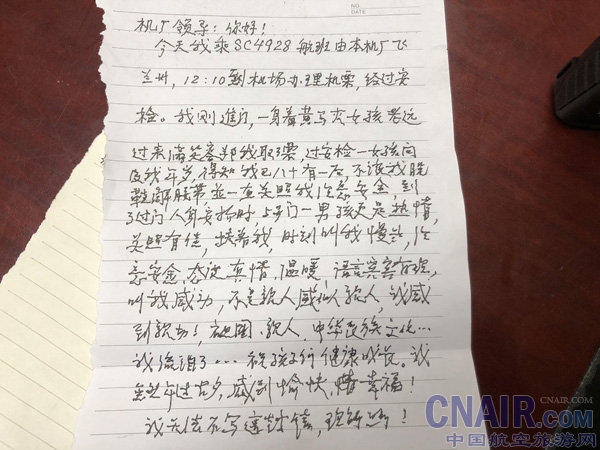 机厂领导：你好！
今天我乘SC4928航班由本机厂飞
兰州，12:10到机场办理机票，经过安
检。我刚进门，一身着黄马夹女孩老远
过来满笑容帮我取票，过安检一女孩问
及我年岁，得知我已八十有一左，不让我脱
鞋解腰带，并一直关照我注意安全，到
了过门人身安检时，5号门一男孩更是热情，
关照有佳，扶着我，时刻叫我慢点，注
意安全，态度真情、温暖，语言实实在在，
叫我感动，不是亲人感似人亲人，我感
到亲切，祖国、亲人、中华民族文化…
我流泪了…祝孩子们健康成长。我
虽然年过古夕，感到愉快，情幸福！
我无法不写这封信，
NO.
DATE
CNAIR.COM
CNAIR.COM
中国航空旅游网